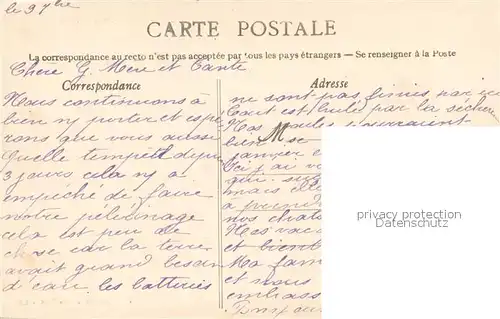 le 9 7bre
CARTE POSTALE
La correspondance au recto n'est pas acceptée par tous les pays étrangers. — Se renseigner à la Poste
Chere G. Mere et Tante
Correspondance
Nous continuons à
bien ny porter et espe
rons que vous aussi
Quelle tempête depuis
3 jours cela ny a
empêché de faire
notre pelerinage
cela est peu de
chose car la terre
avait grand besoin
d'eau les batteries
Adresse
ne sont pas finies par ici
tout est brulé par la sécher
Nos poules
M
bien se
ici j'ai
qui
mais elle
à prendre
nos chats
Nos vac
et bient
Ma fam
et nous
embrass
privacy protection
Datenschutz